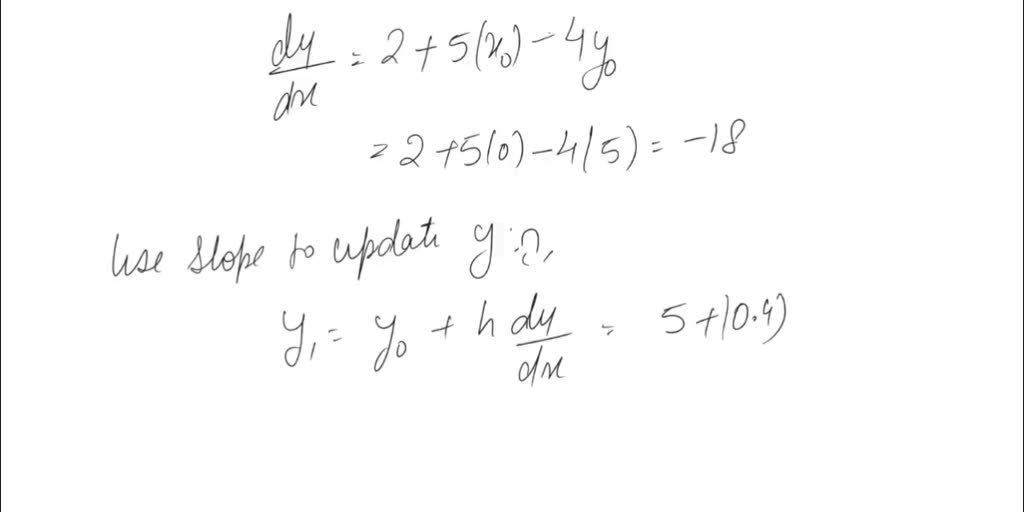 dy/dx = 2 + 5(x₀) - 4y₀
= 2 + 5(0) - 4(5) = -18
Use slope to update y
y₁ = y₀ + h dy/dx = 5 + (0.4)